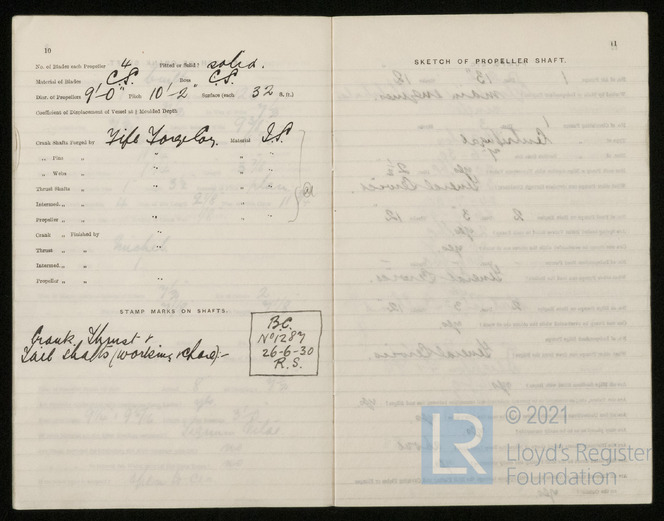 10
No. of Blades each Propeller 4 Fitted or Solid? solid.
Material of Blades C.S. Boss C.S.
Diar. of Propellers 9'-0" Pitch 10'-2" Surface (each 32 S. ft.)
Coefficient of Displacement of Vessel at ¾ Moulded Depth
Crank Shafts Forged by Fife Forge Coy. Material I.S.
„ Pins „ „
„ Webs „ „
Thrust Shafts „ „ „
Intermed. „ „ „ „
Propeller „ „ „ „
Crank „ Finished by „
Thrust „ „ „
Intermed. „ „ „
Propeller „ „ „
STAMP MARKS ON SHAFTS.
Crank, Thrust &
Tail shafts (working & spare):-
B.C.
No 1287
26-6-30
R.S.
11
SKETCH OF PROPELLER SHAFT.
LR
© 2021
Lloyd's Register
Foundation